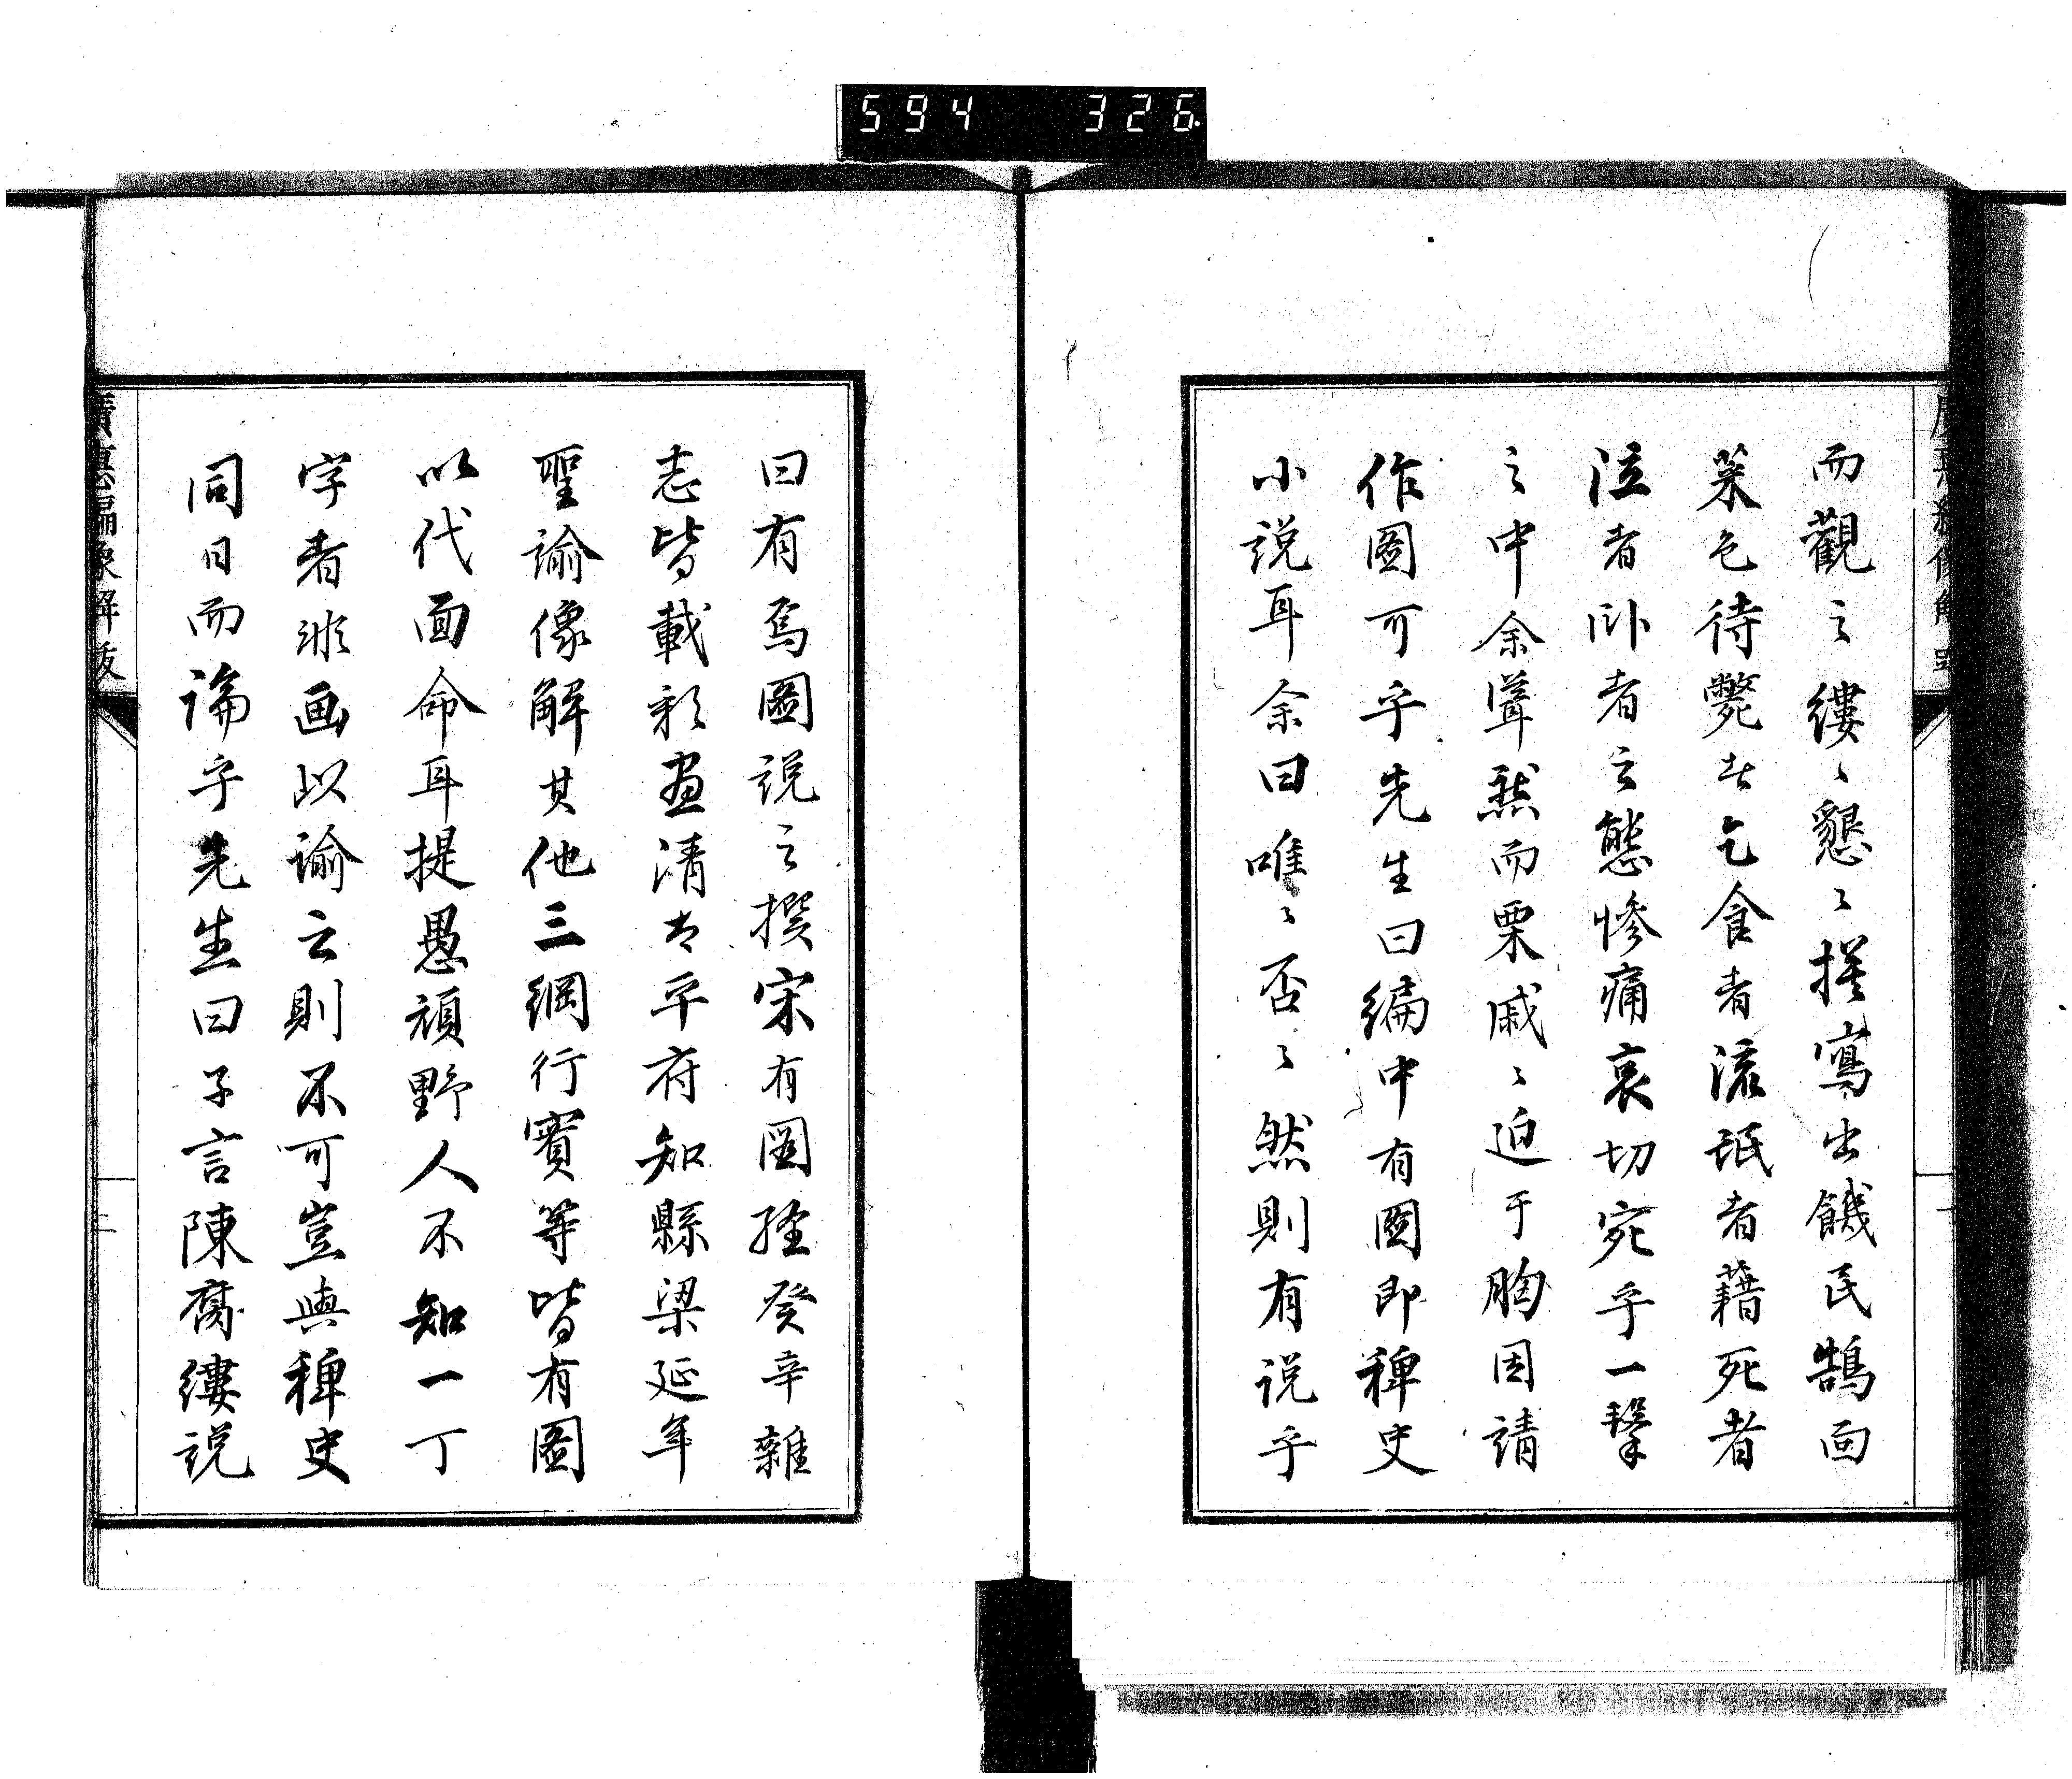 594 326
而觀之縷〻懇〻摸寫出饑民鵠面
菜色待斃者乞食者流氓者藉死者
泣者臥者之態慘痛哀切宛乎一擊
之中余聳然而栗戚〻迫于胸因請
作圖可乎先生曰編中有圖即稗史
小説耳余曰唯〻否〻然則有説乎
曰有焉圖説之撰宋有圖經癸辛雜
志皆載影畫清太平府知縣梁延年
聖諭像解其他三綱行實等皆有圖
以代面命耳提愚頑野人不知一丁
字者非画以諭云則不可豈與稗史
同日而論乎先生曰子言陳腐縷説
廣惠編象解跋
二